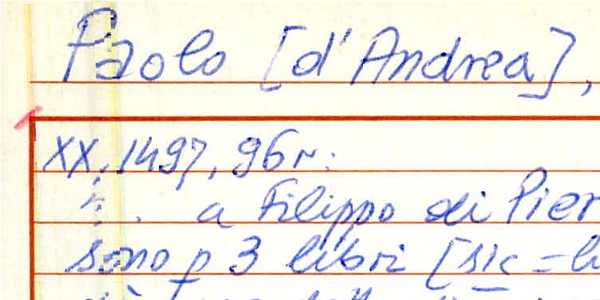 Paolo [d'Andrea],
XX, 1497, 96r:
a Filippo di Pier
sono p 3 libri [sic = li